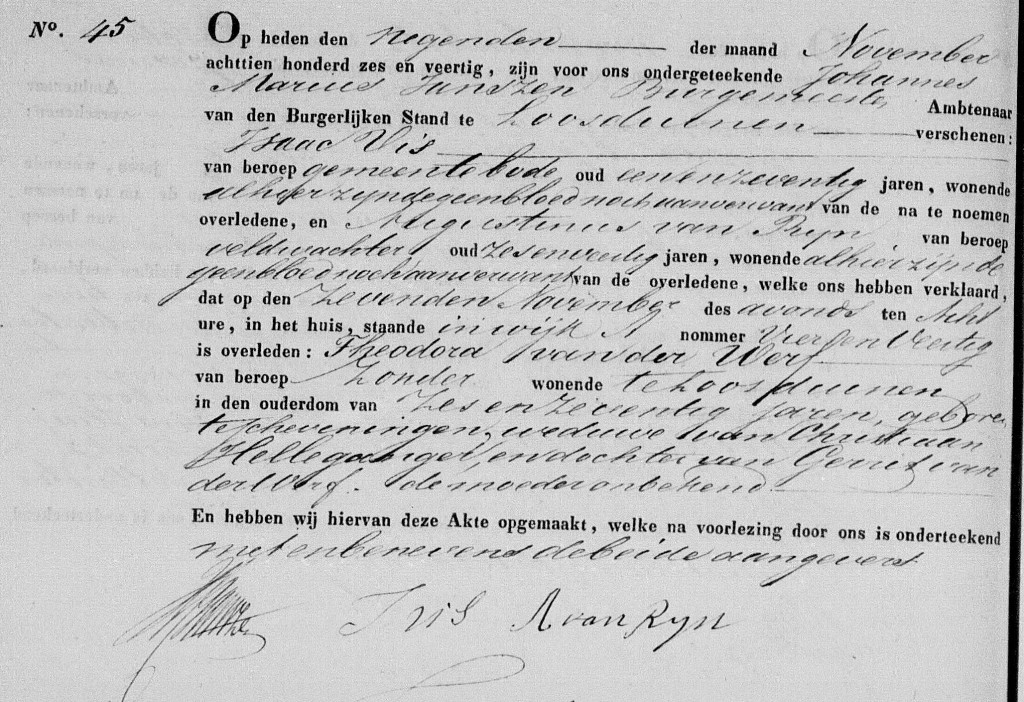 No. 45
Op heden den negenden der maand November
achttien honderd zes en veertig, zijn voor ons ondergeteekende Johannes
Marius Janszen Burgemeester Ambtenaar
van den Burgerlijken Stand te Loosduinen verschenen:
Isaac Vis
van beroep gemeentebode oud eenenzeventig jaren, wonende
alhier zynde geen bloed noch aanverwant van de na te noemen
overledene, en Augustinus van Ryn, van beroep
veldwachter, oud zesenveertig jaren, wonende alhier zijnde
geen bloed noch aanverwant van de overledene, welke ons hebben verklaard,
dat op den zevenden November des avonds ten Acht
ure, in het huis, staande in wijk A nommer Vier en Veertig
is overleden: Theodora van der Werf
van beroep Zonder wonende te Loosduinen
in den ouderdom van Zes en Zeventig Jaren, geboren
te Scheveningen, weduwe van Christiaan
en dochter van Gerrit van
der Werf. de moeder onbekend
En hebben wij hiervan deze Akte opgemaakt, welke na voorlezing door ons is onderteekend
met en benevens de beide aangevers.
I Vis A van Ryn